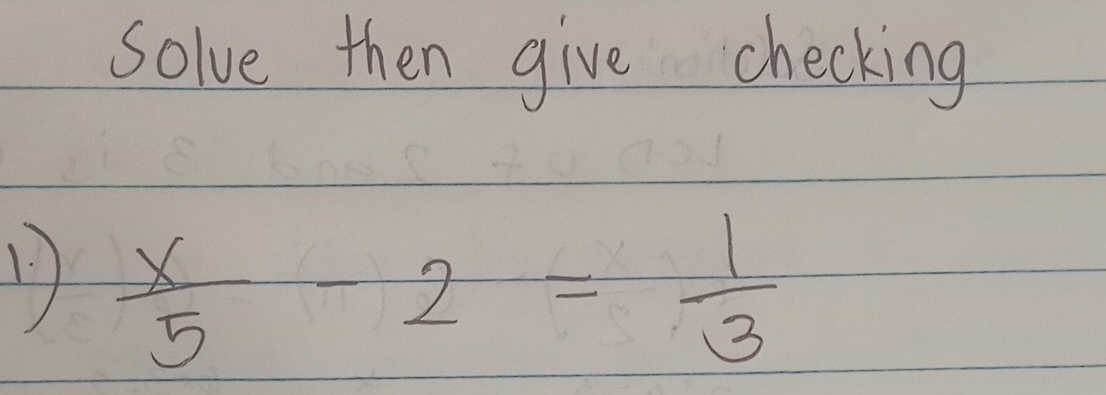 Solve then give checking
1.) x/5 - 2 = 1/3